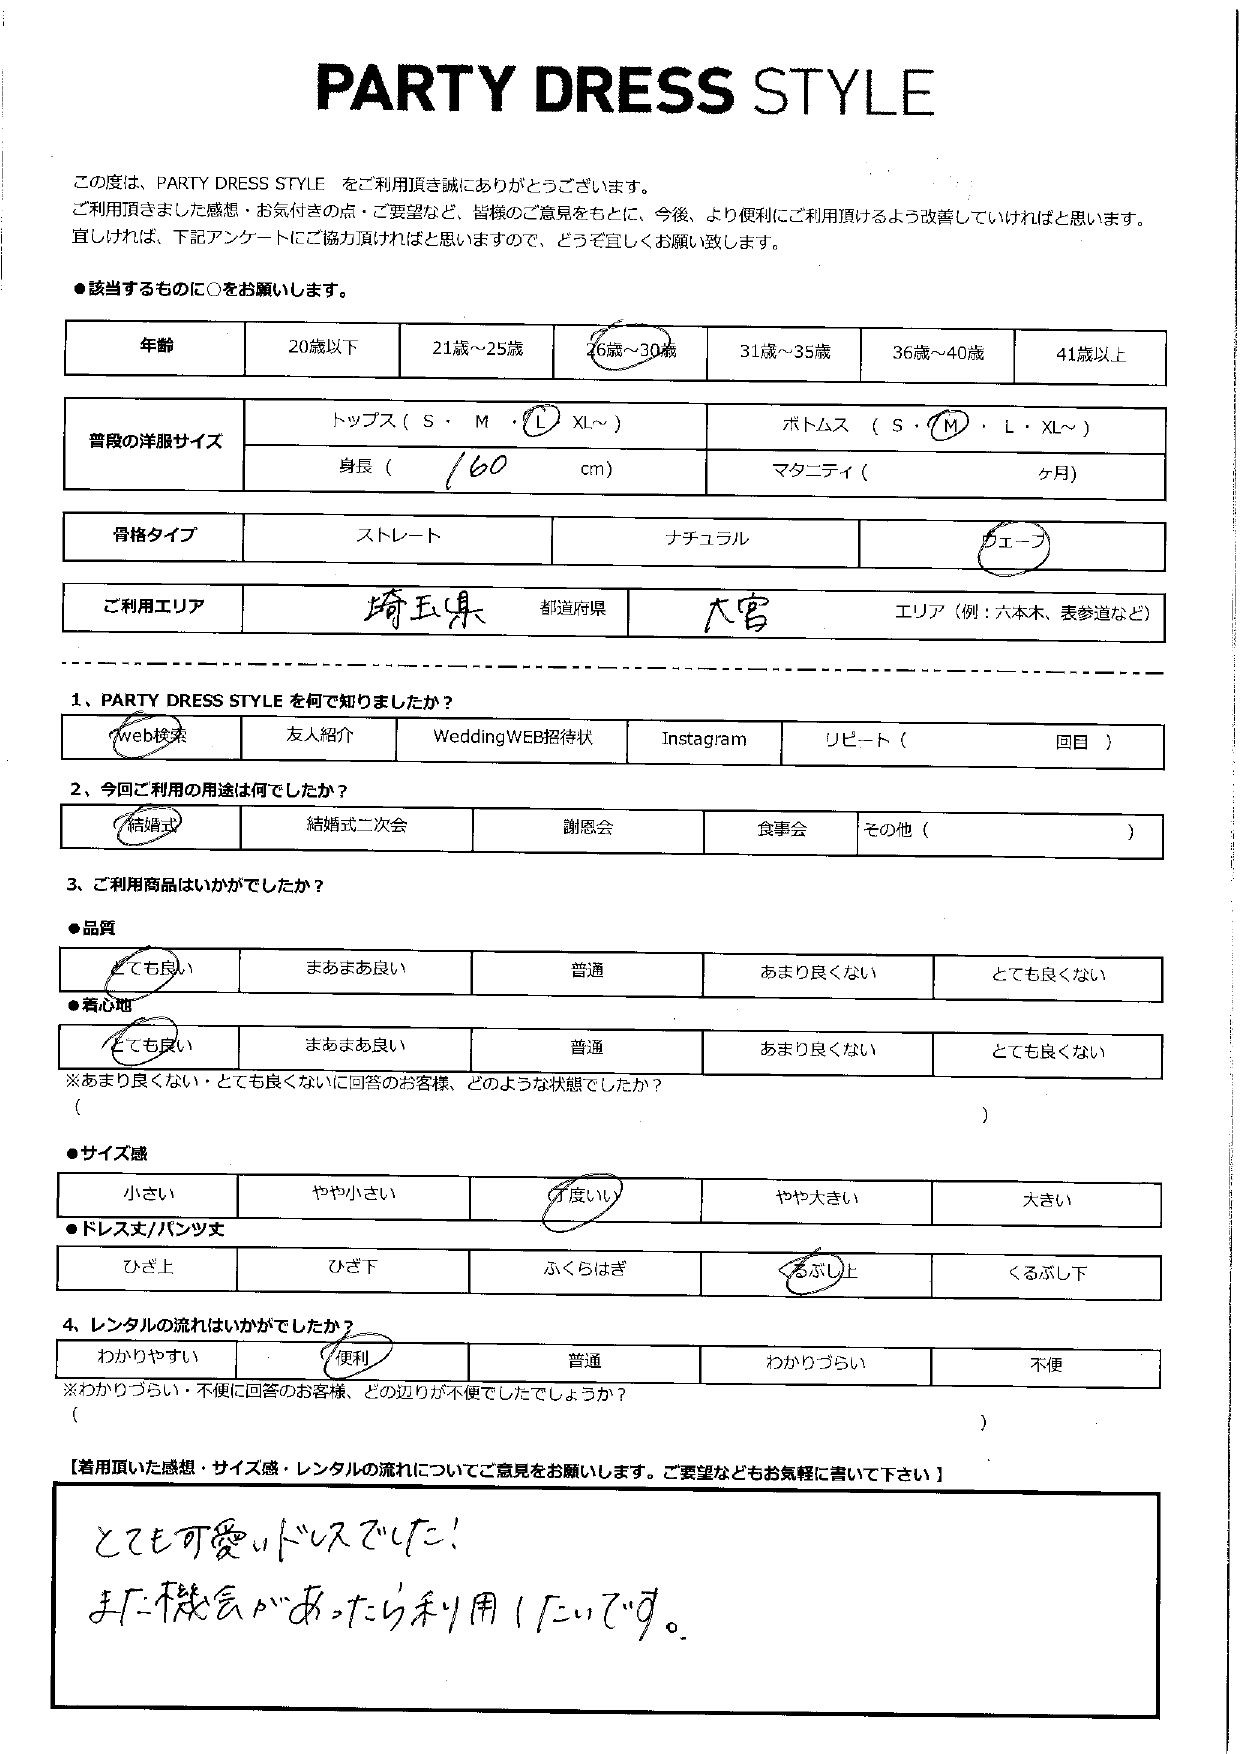 PARTY DRESS STYLE
この度は、PARTY DRESS STYLE をご利用頂き誠にありがとうございます。
ご利用頂きました感想・お気付きの点・ご要望など、皆様のご意見をもとに、今後、より便利にご利用頂けるよう改善していければと思います。
宜しければ、下記アンケートにご協力頂ければと思いますので、どうぞ宜しくお願い致します。
●該当するものに○をお願いします。
年齢 20歳以下 21歳～25歳 26歳～30歳 31歳～35歳 36歳～40歳 41歳以上
普段の洋服サイズ トップス ( S ・ M ・ L XL～ ) ボトムス ( S ・ M ・ L ・ XL～ )
身長 ( 160 cm) マタニティ ( ヶ月)
骨格タイプ ストレート ナチュラル ウェーブ
ご利用エリア 埼玉県 都道府県 大宮 エリア（例：六本木、表参道など）
1、PARTY DRESS STYLE を何で知りましたか？
web検索 友人紹介 WeddingWEB招待状 Instagram リピート ( 回目 )
2、今回ご利用の用途は何でしたか？
結婚式 結婚式二次会 謝恩会 食事会 その他 ( )
3、ご利用商品はいかがでしたか？
●品質
とても良い まあまあ良い 普通 あまり良くない とても良くない
●着心地
とても良い まあまあ良い 普通 あまり良くない とても良くない
※あまり良くない・とても良くないに回答のお客様、どのような状態でしたか？
( )
●サイズ感
小さい やや小さい 丁度いい やや大きい 大きい
●ドレス丈/パンツ丈
ひざ上 ひざ下 ふくらはぎ くるぶし上 くるぶし下
4、レンタルの流れはいかがでしたか？
わかりやすい 便利 普通 わかりづらい 不便
※わかりづらい・不便に回答のお客様、どの辺りが不便でしたでしょうか？
( )
【着用頂いた感想・サイズ感・レンタルの流れについてご意見をお願いします。ご要望などもお気軽に書いて下さい】
とても可愛いドレスでした!
また機会があったら利用したいです。